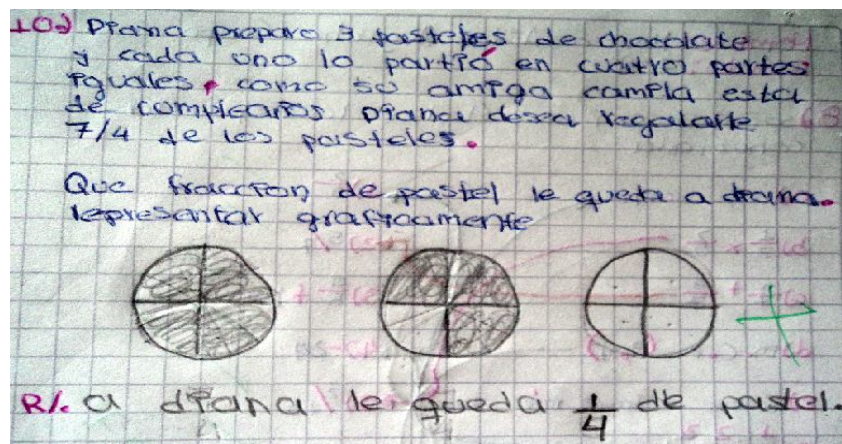 10) Diana preparo 3 pasteles de chocolate
y cada uno lo partió en cuatro partes
iguales, como su amiga camila esta
de cumpleaños Diana desea regalarle
7/4 de los pasteles.
Que fraccion de pastel le queda a diana.
representar graficamente
R/. a diana le queda 1/4 de pastel.